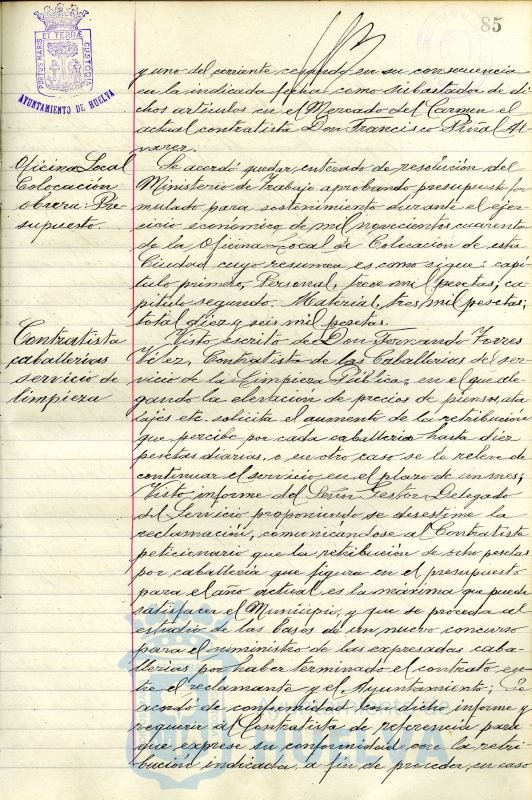 85
PORTUS MARIS ET TERRÆ CUSTODIA
AYUNTAMIENTO DE HUELVA
y uno del corriente cesando, en su consecuencia
en la indicada fecha como subastador de di-
chos artículos en el Mercado del Carmen el
actual contratista Don Francisco Piñal Al-
varez.
Oficina Local
Colocacion
obrera: Pre-
supuesto.
Se acordó quedar enterado de resolución del
Ministerio de Trabajo aprobando presupuesto for-
mulado para sostenimiento durante el ejer-
cicio económico de mil novecientos cuarenta
de la Oficina Local de Colocacion de esta
Ciudad cuyo resumen es como sigue: capí-
tulo primero, Personal, trece mil pesetas; ca-
pítulo segundo. Material, tres mil pesetas;
total diez y seis mil pesetas.
Contratista
caballerias
servicio de
limpieza
Visto escrito de Don Fernando Torres
Velez, Contratista de las Caballerias del ser-
vicio de la Limpieza Pública, en el que ale-
gando la elevacion de precios de piensos, ata-
lajes etc. solicita el aumento de la retribución
que percibe por cada caballeria hasta diez
pesetas diarias, o en otro caso se le releve de
continuar el servicio en el plazo de un mes;
Visto informe del Señor Gestor Delegado
del Servicio proponiendo se desestime la
reclamación, comunicándose al Contratista
peticionario que la retribución de ocho pesetas
por caballeria que figura en el presupuesto
para el año actual es la maxima que puede
satisfacer el Municipio, y que se proceda al
estudio de las bases de un nuevo concurso
para el suministro de las expresadas caba-
llerias por haber terminado el contrato en-
tre el reclamante y el Ayuntamiento; Se
acordó de conformidad con dicho informe y
requerir al Contratista de referencia para
que exprese su conformidad con la retri-
bución indicada, a fin de proceder, en caso